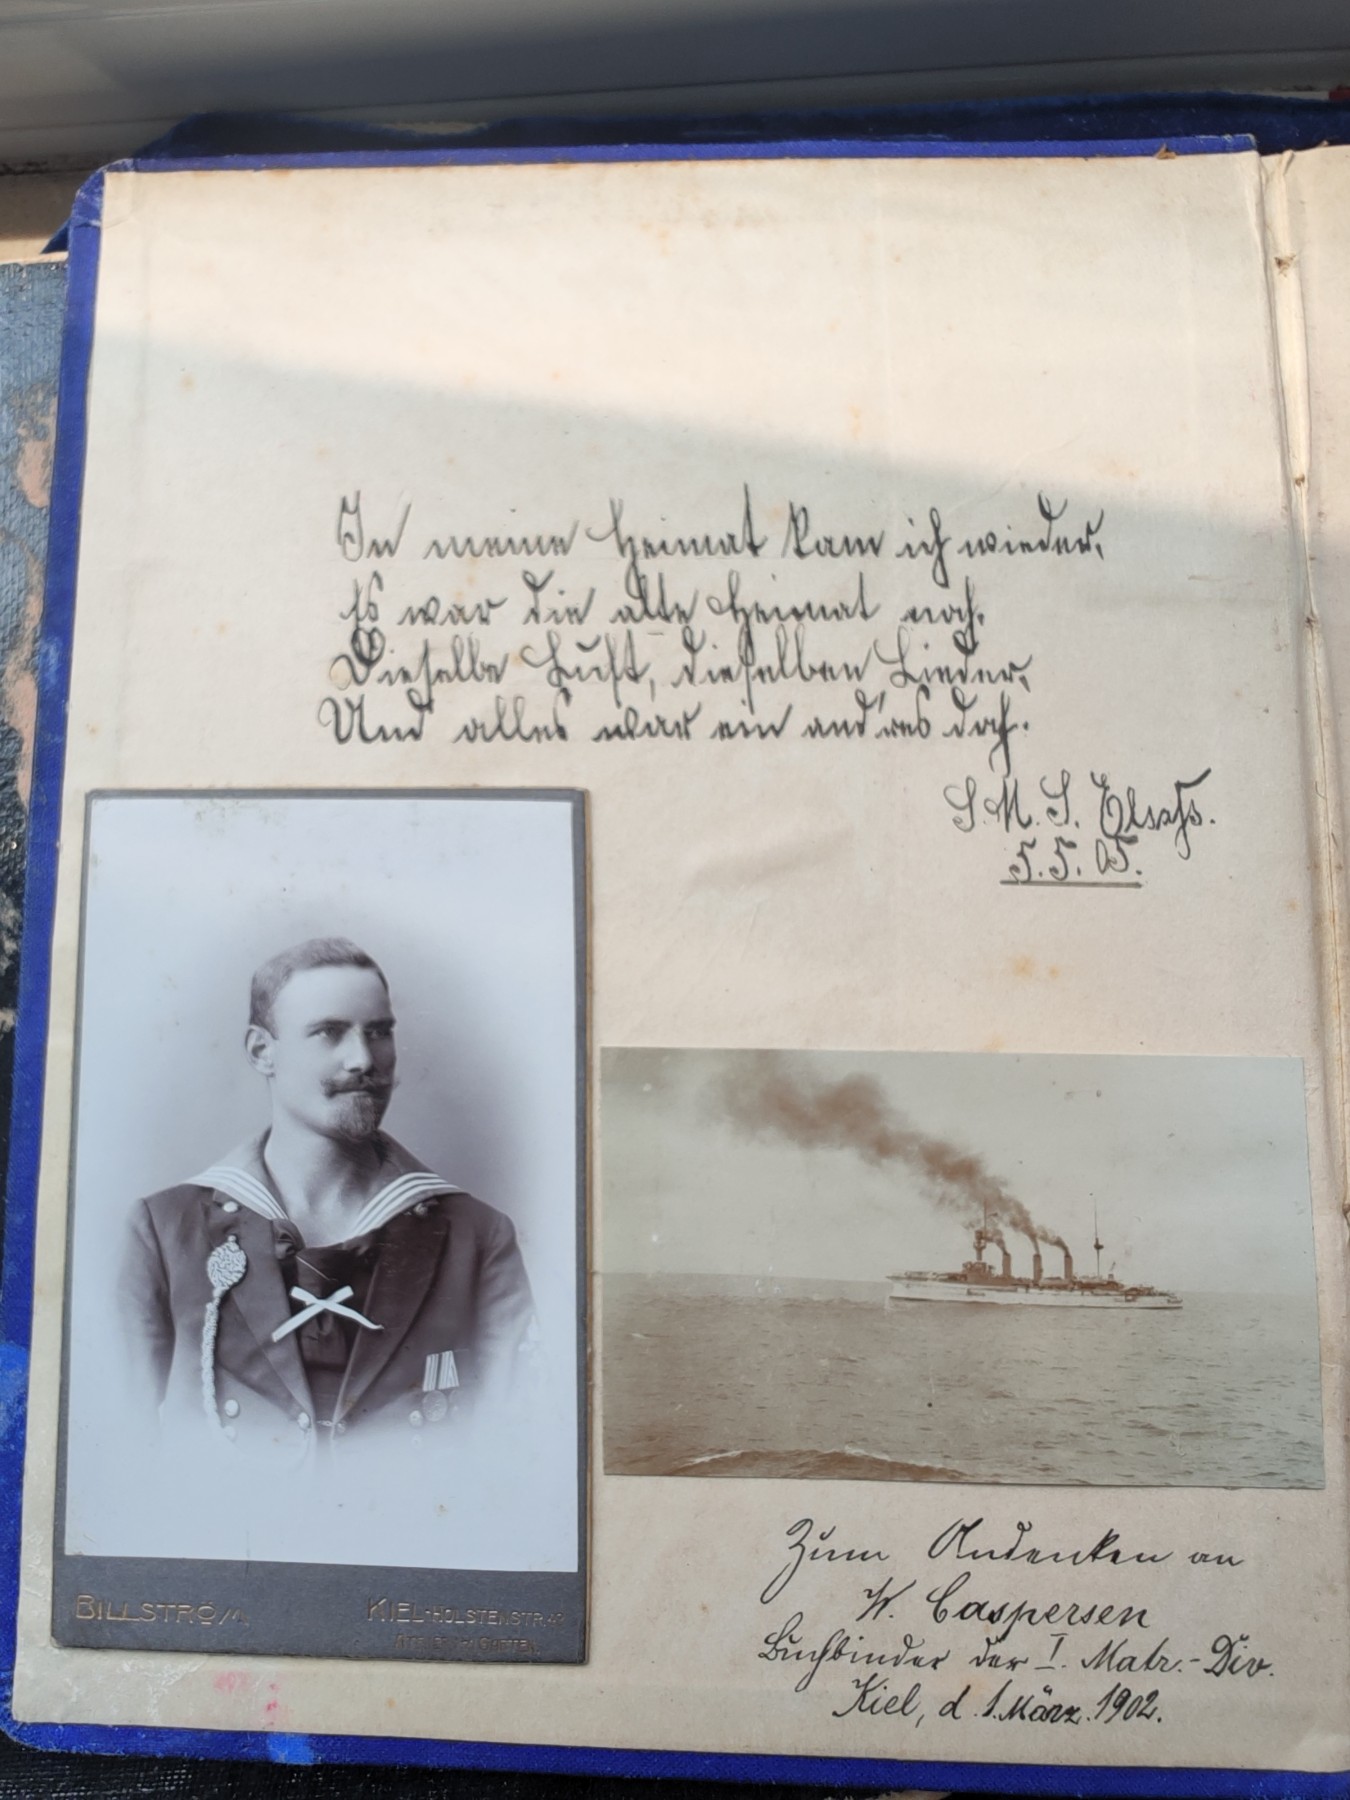 In meine Heimat kam ich wieder,
Es war die alte Heimat noch.
Dieselbe Luft, dieselben Lieder,
Und alles war ein and'res doch.
S.M.S. Elsaß.
5.5.05.
BILLSTRÖM
KIEL-HOLSTENSTR.
Zum Andenken an
W. Caspersen
Buchbinder der I. Matr.-Div.
Kiel, d. 1. März. 1902.